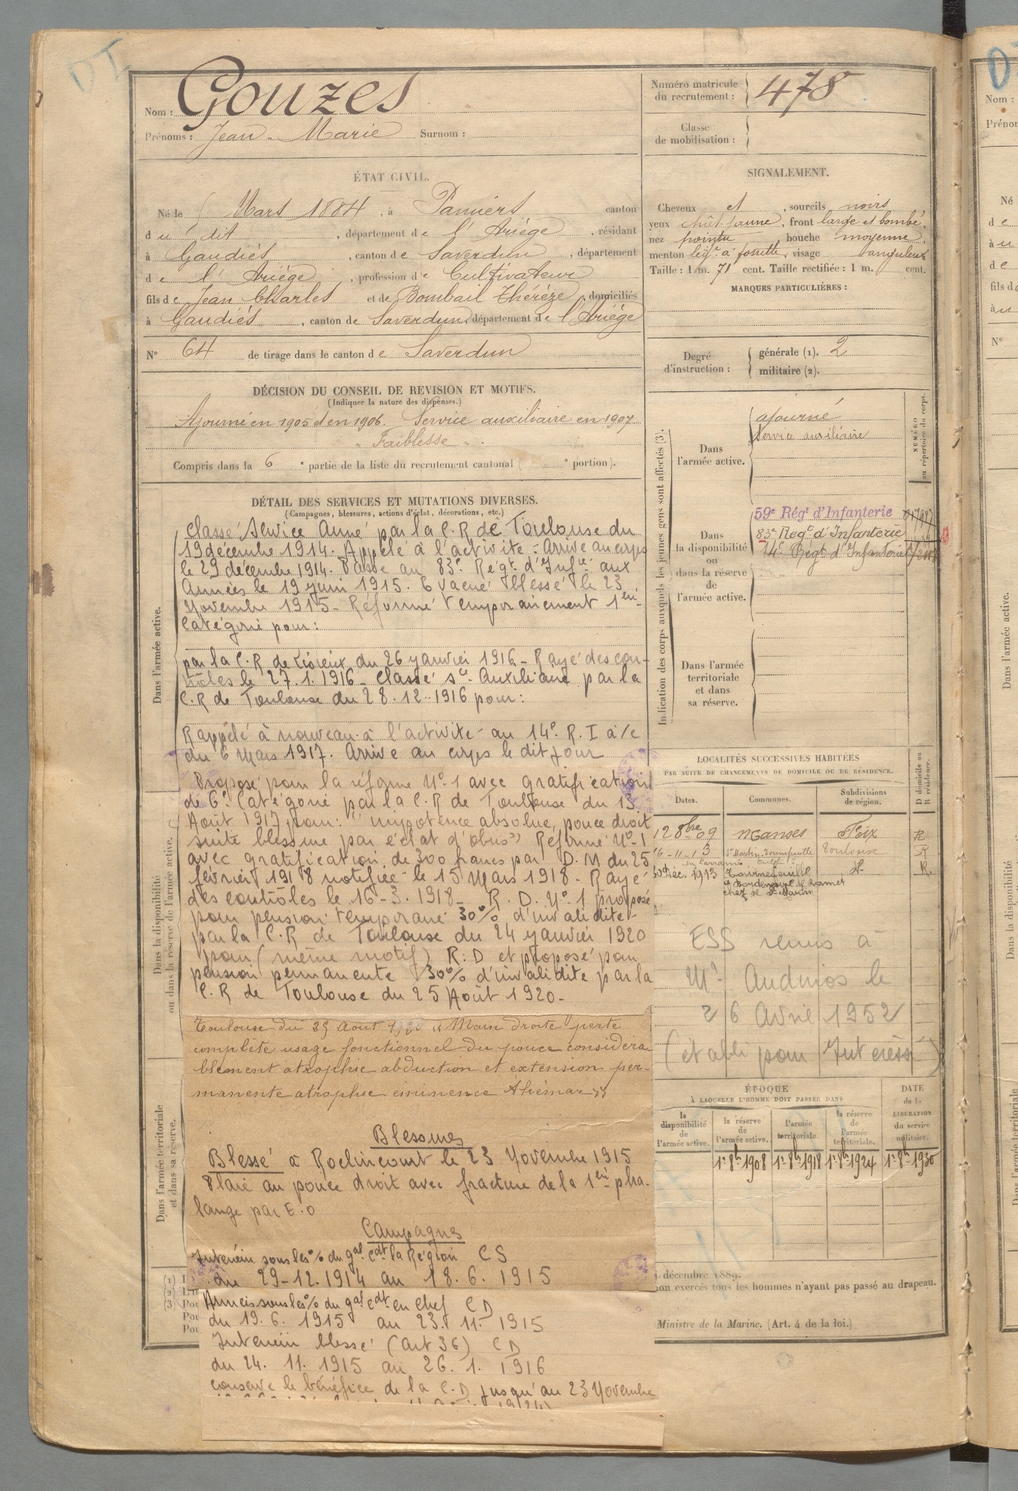 Nom : Gouzes
Prénoms : Jean-Marie Surnom :
Numéro matricule du recrutement : 478
Classe de mobilisation :
ÉTAT CIVIL.
Né le Mars 1884, à Pamiers canton
du dit, département de l'Ariège, résidant
à Gaudiés, canton de Saverdun, département
de l'Ariège, profession de Cultivateur
fils de Jean Charles et de Bombail Thérèze, domiciliés
à Gaudiés, canton de Saverdun, département de l'Ariège
N° 64 de tirage dans le canton de Saverdun
SIGNALEMENT.
Cheveux et sourcils noirs
yeux chât. jaune, front large et bombé,
nez pointu bouche moyenne
menton à fossette, visage
Taille : 1 m. 71 cent. Taille rectifiée : 1 m. cent.
MARQUES PARTICULIÈRES :
Degré d'instruction : générale (1). 2
militaire (2).
DÉCISION DU CONSEIL DE REVISION ET MOTIFS.
(Indiquer la nature des dispenses.)
Ajourné en 1905 et en 1906. Service auxiliaire en 1907
"Faiblesse".
Compris dans la 6e partie de la liste du recrutement cantonal ( e portion).
Indication des corps auxquels les jeunes gens sont affectés (3).
NUMÉRO au répertoire du corps.
Dans l'armée active.
ajourné
Service auxiliaire
Dans la disponibilité ou dans la réserve de l'armée active.
59e Régt d'Infanterie
83e Regt d'Infanterie
14e Régt d'Infanterie
Dans l'armée territoriale et dans sa réserve.
DÉTAIL DES SERVICES ET MUTATIONS DIVERSES.
(Campagnes, blessures, actions d'éclat, décorations, etc.)
Dans l'armée active.
Classé Service Armé par la C.R de Toulouse du
19 décembre 1914. Appelé à l'activité - Arrivé au corps
le 29 décembre 1914. Passé au 83e Régt d'Infie aux
Armées le 19 juin 1915. Evacué blessé le 23
Novembre 1915 - Réformé temporairement 1ère
Catégorie pour:
par la C.R de Lisieux du 26 janvier 1916 - Rayé des con-
trôles le 27.1.1916 - Classé Sce Auxiliaire par la
C.R de Toulouse du 28.12.1916 pour:
Rappelé à nouveau à l'activité au 14e R.I à/c
du 6 Mars 1917. Arrivé au corps le dit jour
Proposé pour la réforme N°1 avec gratification
de 6e Catégorie par la C.R de Toulouse du 13
Août 1917 pour: "impotence absolue, pouce droit
suite blessure par éclat d'obus" Réformé N°1
avec gratification de 300 francs par D.M du 25
février 1918 notifiée le 15 Mars 1918 - Rayé
des contrôles le 16-3-1918 - R.D. N°1 proposé
pour pension temporaire 30% d'invalidité
par la C.R de Toulouse du 24 janvier 1920
pour (même motif) R.D et proposé pour
pension permanente 30% d'invalidité par la
C.R de Toulouse du 25 Août 1920 -
Toulouse du 25 Août 1920 "Main droite" perte
complète usage fonctionnel du pouce considéra
blement atrophié abduction et extension per-
manente atrophie éminence thénar"
Blessures
Blessé à Roclincourt le 23 Novembre 1915
Plaie au pouce droit avec fracture de la 1ère pha-
lange par E.O
Campagnes
Intérieur sous les o/o du gal cdt la Région CS
du 29-12.1914 au 18.6.1915
Armées sous les o/o du gal cdt en chef CD
du 19.6.1915 au 23.11.1915
Intérieur blessé (art 36) CD
du 24.11.1915 au 26.1.1916
conserve le bénéfice de la C.D jusqu'au 23 Novembre
Dans la disponibilité ou dans la réserve de l'armée active.
Dans l'armée territoriale et dans sa réserve.
LOCALITÉS SUCCESSIVES HABITÉES
PAR SUITE DE CHANGEMENTS DE DOMICILE OU DE RÉSIDENCE.
Dates. Communes. Subdivisions de région. D domicile ou R résidence.
12 8bre 09 Manses Foix R
16-11-13 Toulouse R
Déc. 1913 Tournefeuille R.
ESS remis à
Mr Audinos le
26 Avril 1952
(établi pour Intéressé)
ÉPOQUE
À LAQUELLE L'HOMME DOIT PASSER DANS
la disponibilité de l'armée active.
la réserve de l'armée active.
l'armée territoriale.
la réserve de l'armée territoriale.
DATE de la LIBÉRATION du service militaire.
1er 8bre 1908 1er 8bre 1918 1er 8bre 1924 1er 8bre 1930
décembre 1889.
non exercés tous les hommes n'ayant pas passé au drapeau.
Ministre de la Marine. (Art. 4 de la loi.)